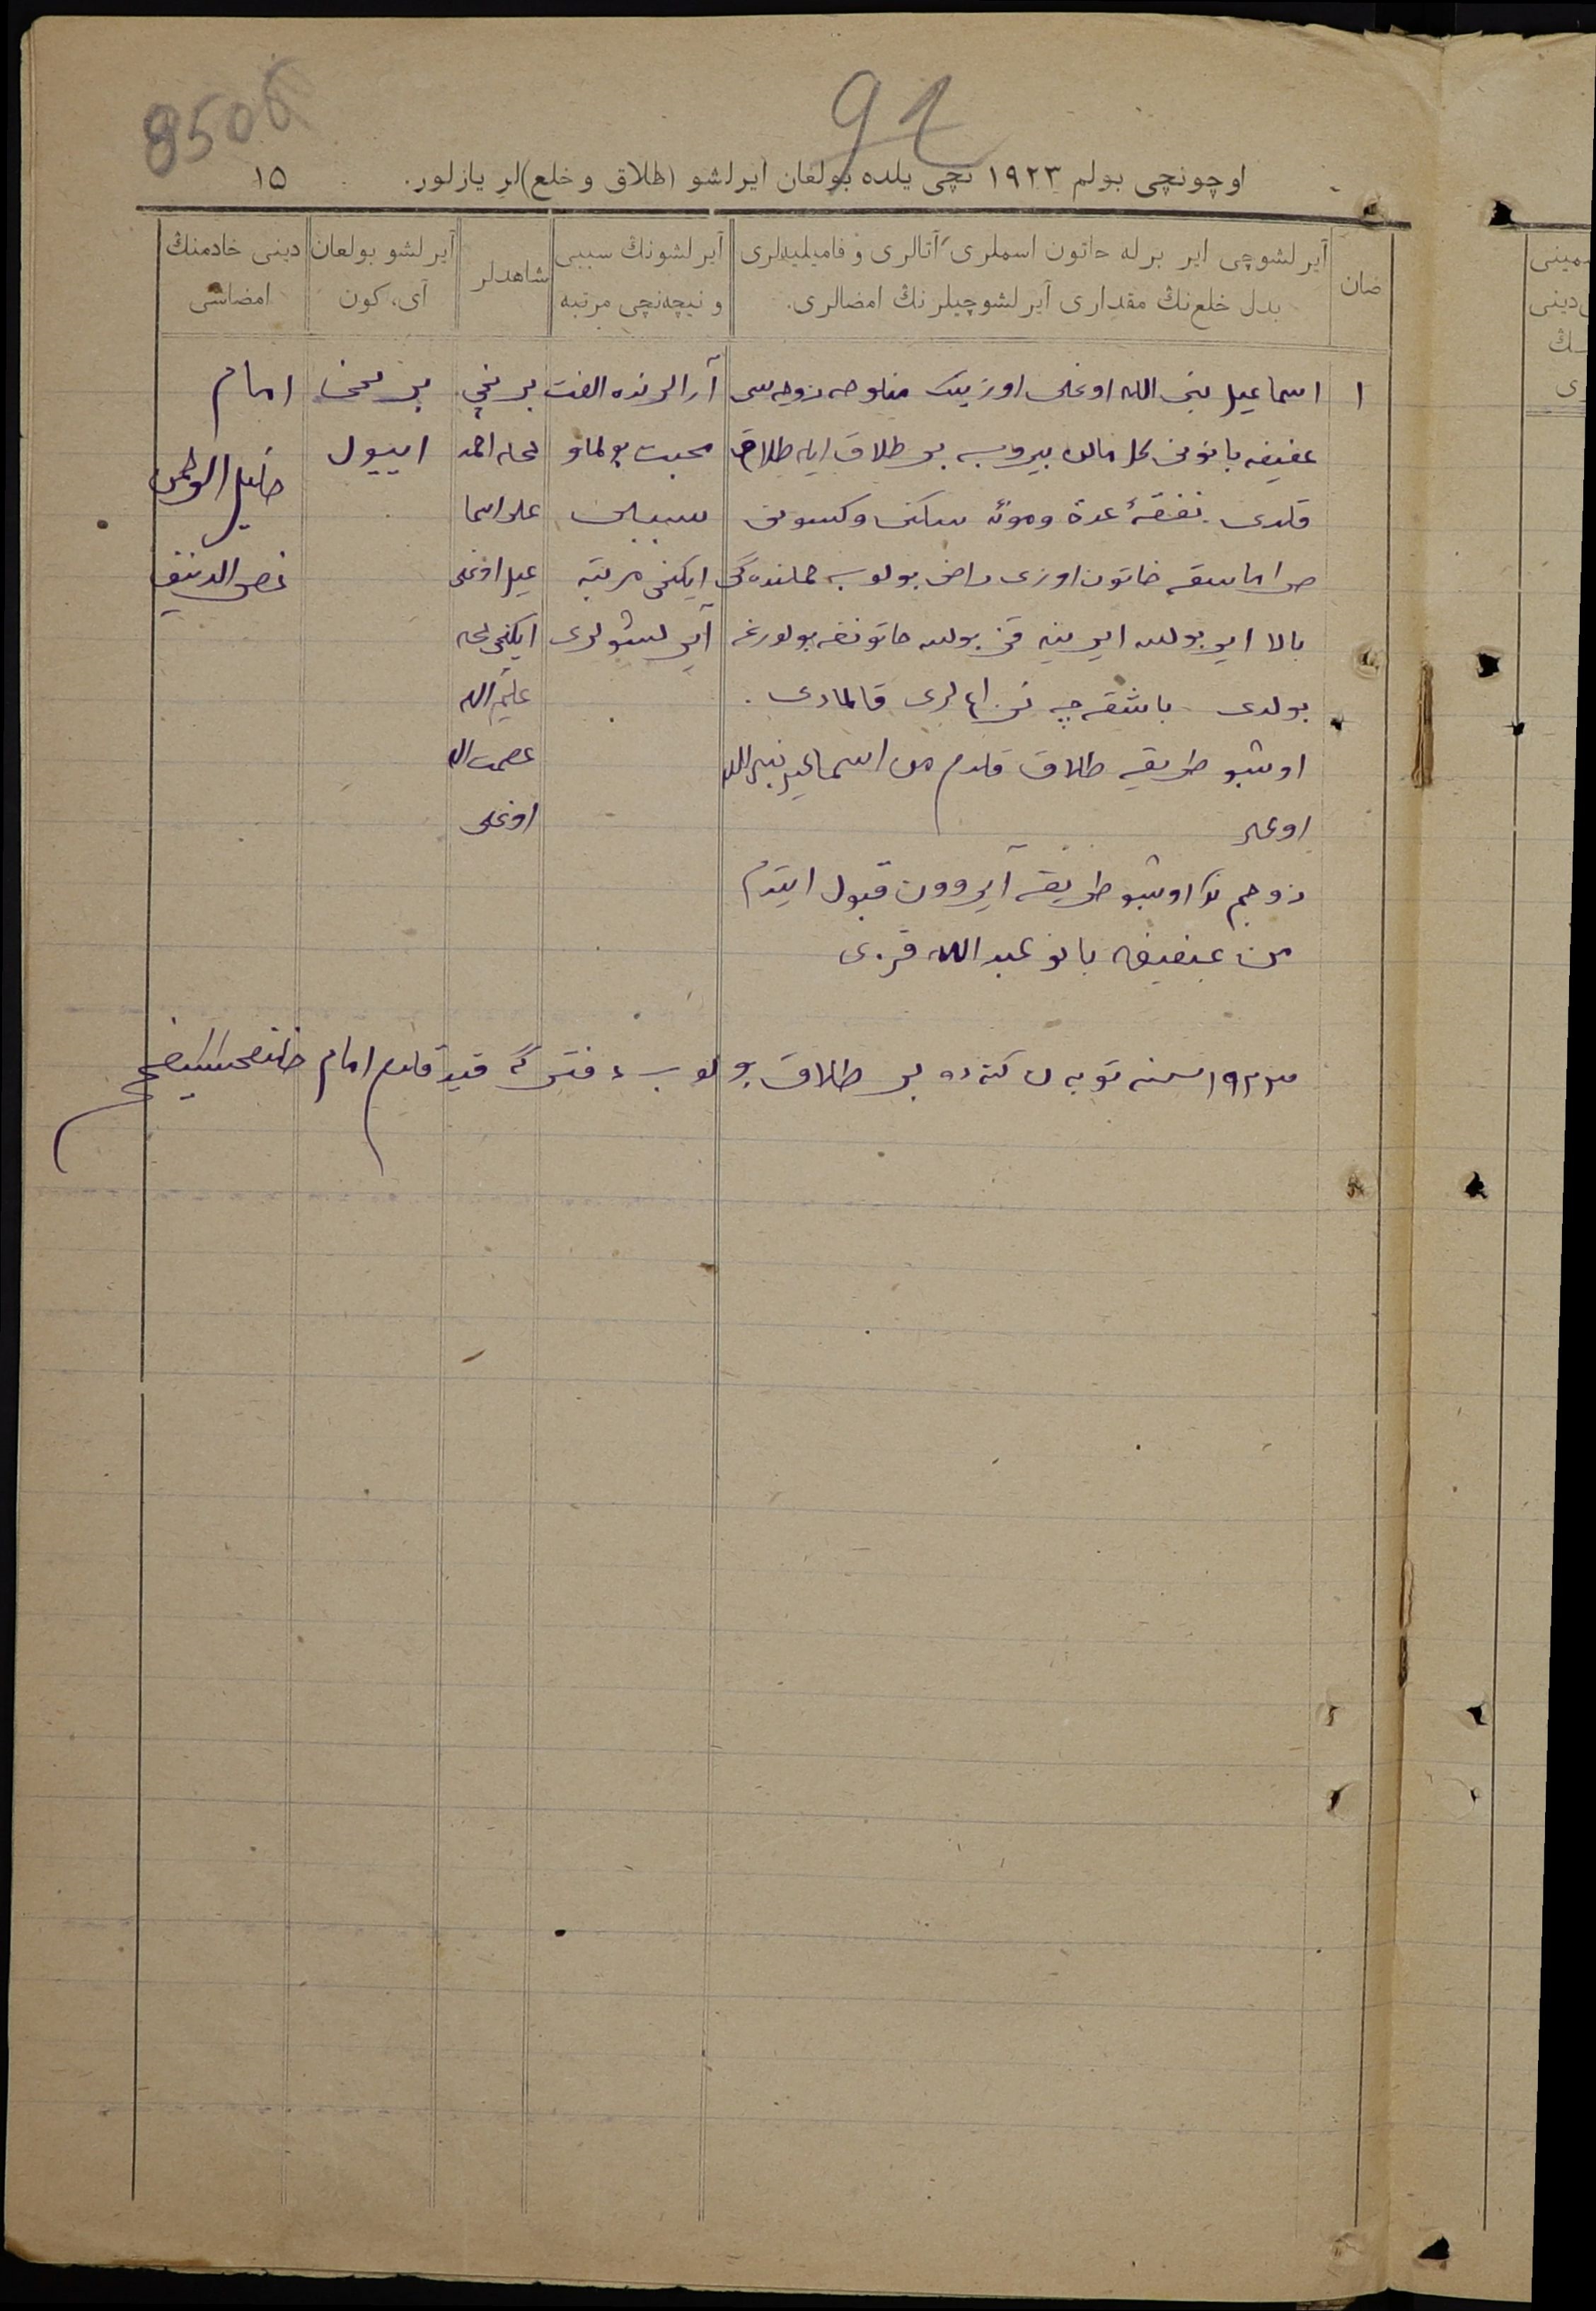 850б
91
اوچونچی بولم ۱۹۲۳ نچی یلده بولغان آیرلشو (طلاق و خلع)لر یازلور.
۱۵
صان
آیرلشوچی ایر برله خاتون اسملری، آتالری و فامیلیه‌لری
بدل خلع‌نڭ مقداری آیرلشوچیلرنڭ امضالری.
آیرلشونڭ سببی
و نیچه‌نچی مرتبه
شاهدلر
آیرلشو بولغان
آی، کون
دینی خادمنڭ
امضاسی
۱
اسماعیل نبی الله اوغلی اوزینڭ منکوحه زوجه‌سی
عفیفه بانونی کل مالن بیروب بر طلاق ایله طلاق
قلدی نفقهٔ عدة ومؤنه سکنی وکسوتن
خاتون اوزی راضی بولوب حملنده‌گی
بالا ایر بولسه ایرینه قز بولسه خاتونغه بولورغه
بولدی باشقه‌چه نزاعلری قالمادی.
اوشبو طریقه طلاق قلدم من اسماعیل نبی الله
اوغلی
زوجم اوشبو طریقه آیروون قبول ایتدم
من عفیفه بانو عبدالله قزی
آرالرنده الفت
محبت بولماو
سببلی
ایکنچی مرتبه
آیرلشولری
برنچی
احمد
علی اسما
عیل اوغلی
ایکنچی
علیم الله
عصمت الله
اوغلی
برنچی
اییول
امام
خلیل الرحمن
نصرالدینف
۱۹۲۳ سنه ده بر طلاق بولوب دفترگه قید قلدم امام